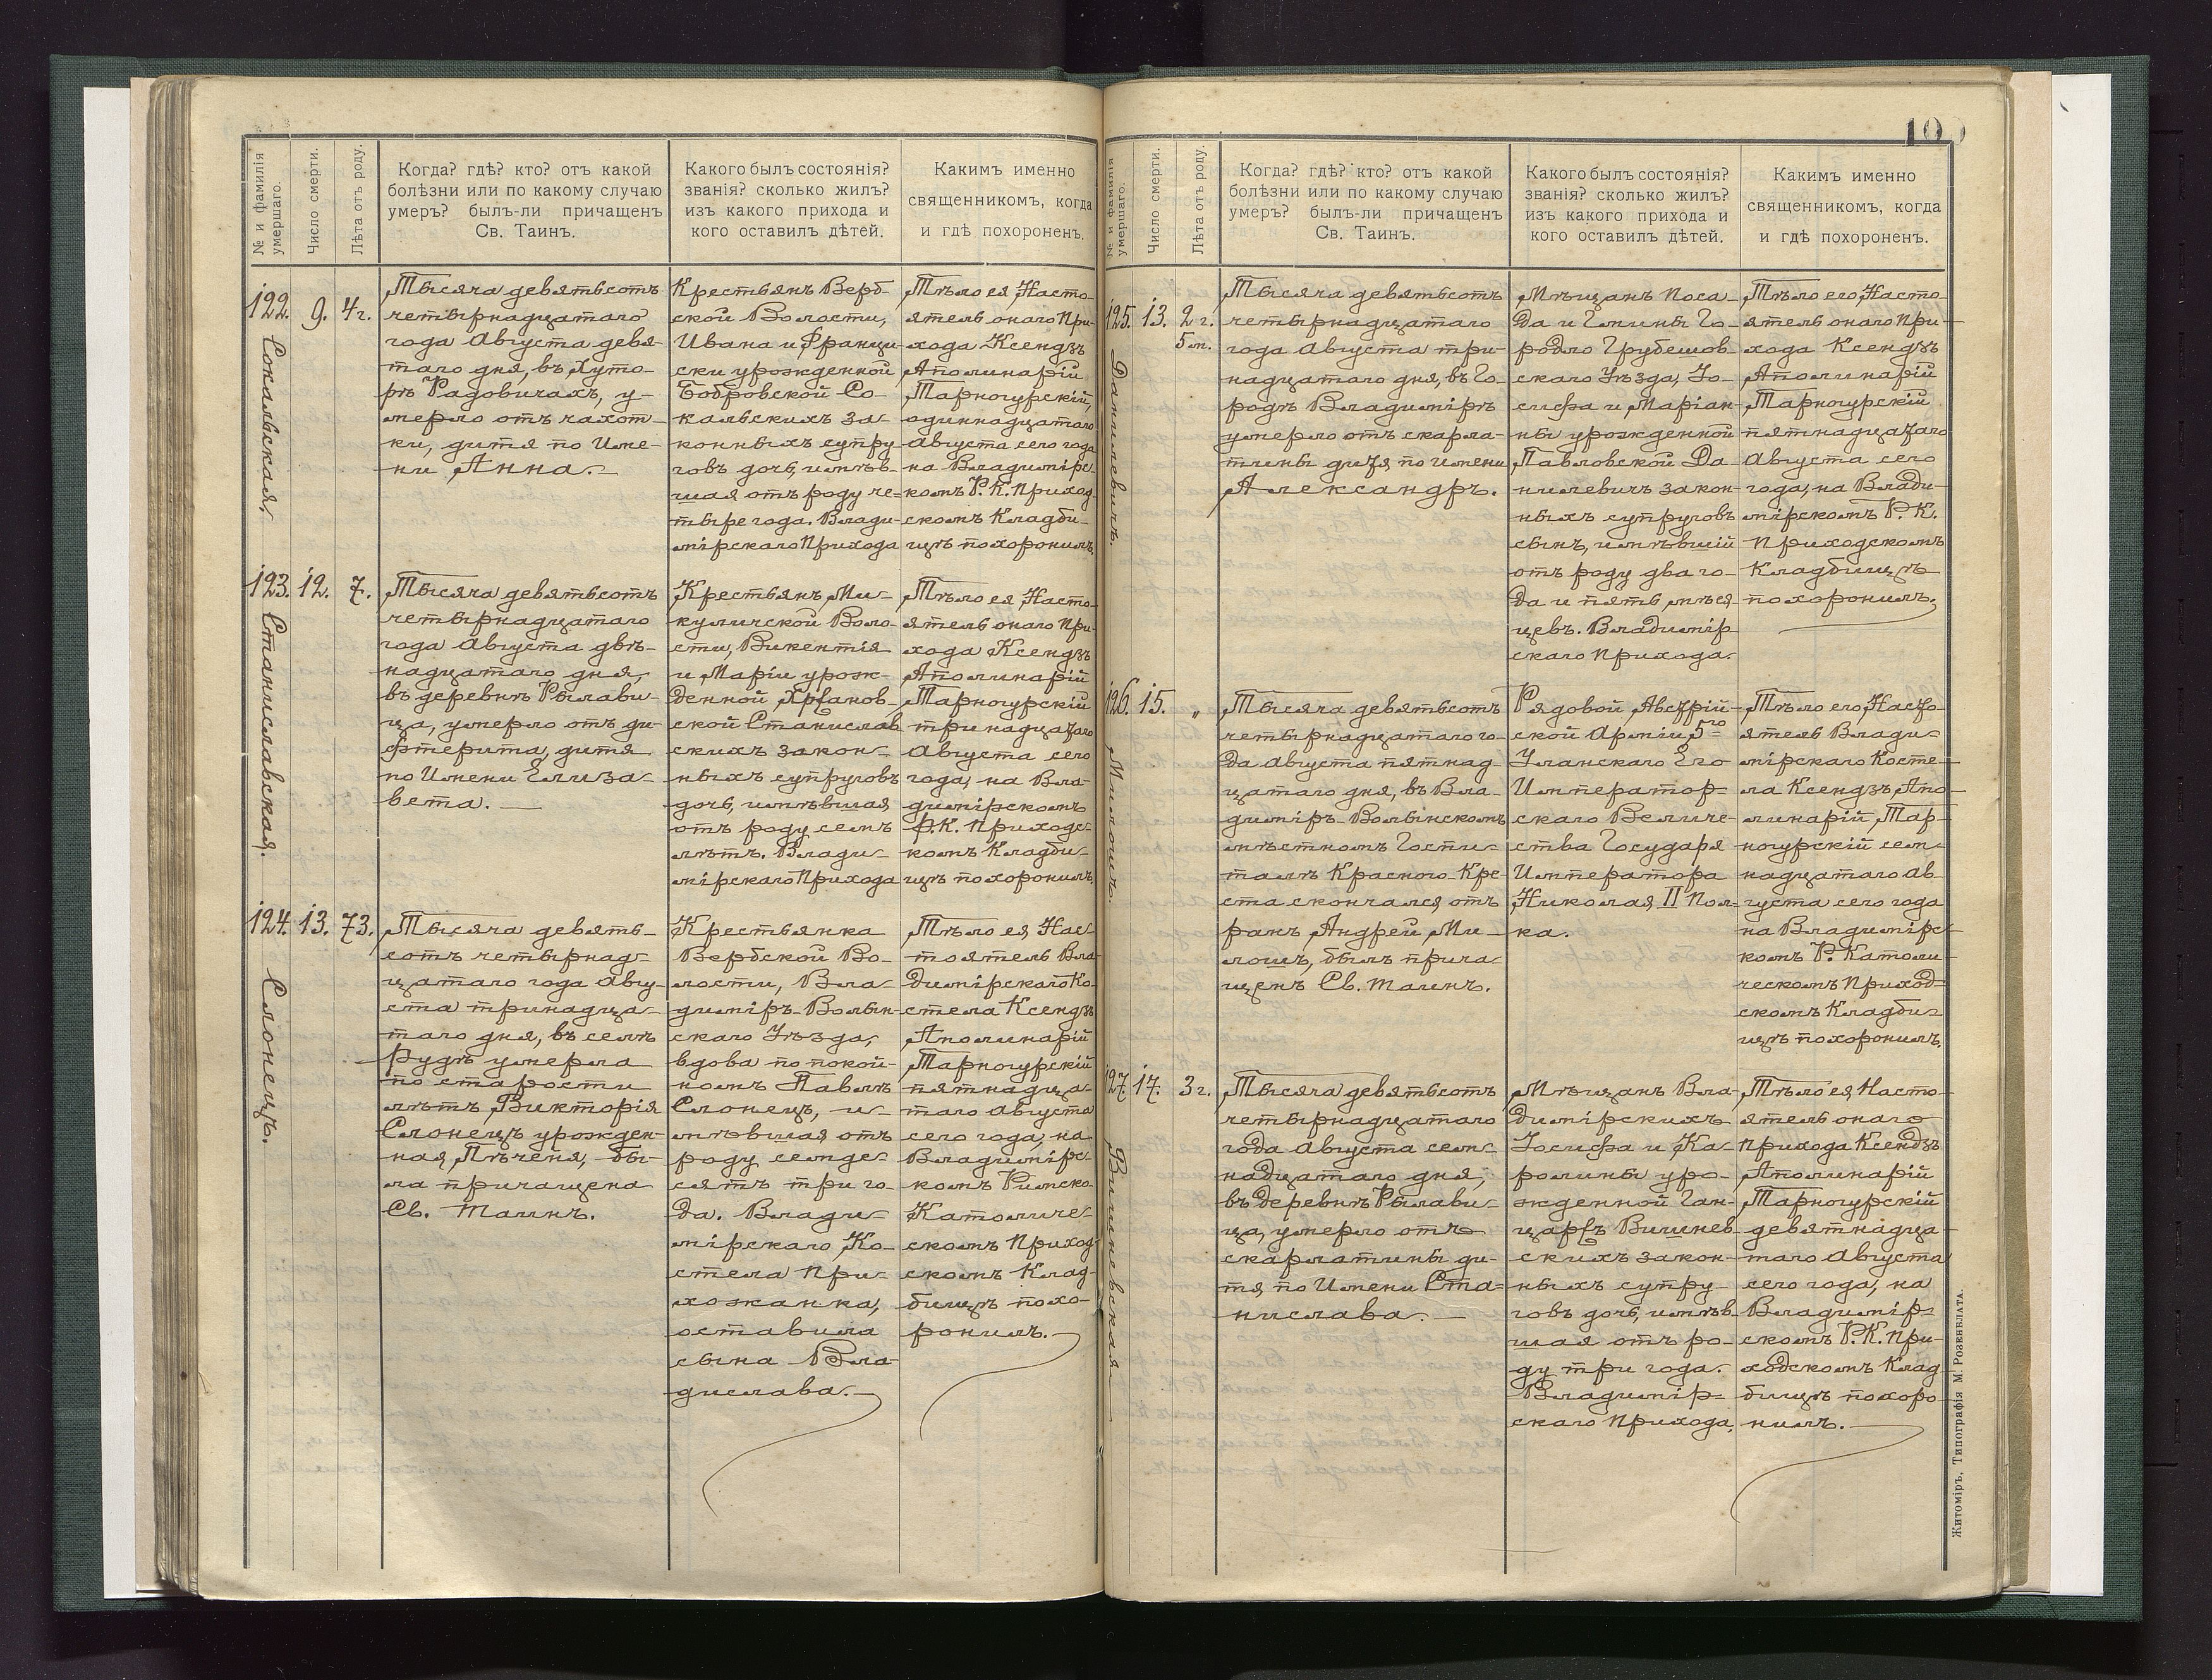 100
№ и фамилія
умершаго.
Число смерти.
Лѣта отъ роду.
Когда? гдѣ? кто? отъ какой
болѣзни или по какому случаю
умеръ? былъ-ли причащенъ
Св. Таинъ.
Какого былъ состоянія?
званія? сколько жилъ?
изъ какого прихода и
кого оставилъ дѣтей.
Какимъ именно
священникомъ, когда
и гдѣ похороненъ.
122.
Сокальская,
9.
4 г.
Тысяча девятьсотъ
четырнадцатаго
года Августа девя-
таго дня, въ Хуто-
рѣ Радовичахъ, у-
мерло отъ чахот-
ки, дитя по Име-
ни Анна.
Крестьянъ Верб-
ской Волости,
Ивана и Францис-
ки урожденной
Бобровской Со-
кальскихъ за-
конныхъ супру-
говъ дочь, имѣв-
шая отъ роду че-
тыре года. Влади-
мірскаго Прихода
Тѣло ея Насто-
ятель онаго При-
хода Ксендзъ
Аполинарій
Тарногурскій,
одиннадцатаго
Августа сего года
на Владимірс-
комъ Р. К. Приход-
скомъ Кладби-
щѣ похоронилъ.
123.
Станиславская.
12.
7.
Тысяча девятьсотъ
четырнадцатаго
года Августа двѣ-
надцатаго дня,
въ деревнѣ Рылави-
ца, умерло отъ ди-
фтерита, дитя
по Имени Елиза-
вета.
Крестьянъ Ми-
куличской Воло-
сти, Викентія
и Маріи урож-
денной Хржанов-
ской Станислав-
скихъ закон-
ныхъ супруговъ
дочь, имѣвшая
отъ роду семь
лѣтъ. Влади-
мірскаго Прихода
Тѣло ея Насто-
ятель онаго При-
хода Ксендзъ
Аполинарій
Тарногурскій
тринадцатаго
Августа сего
года, на Вла-
димірскомъ
Р. К. Приходс-
комъ Кладби-
щѣ похоронилъ.
124.
Слонецъ.
13.
73.
Тысяча девять-
сотъ четырнад-
цатаго года Авгу-
ста тринадца-
таго дня, въ селѣ
Рудѣ умерла
по старости
лѣтъ, Викторія
Слонецъ урожден-
ная Пѣченя, бы-
ла причащена
Св. Таинъ.
Крестьянка
Вербской Во-
лости, Вла-
диміръ-Волын-
скаго Уѣзда,
вдова по покой-
номъ Павлѣ
Слонецъ, и-
мѣвшая отъ
роду семьде-
сятъ три го-
да. Влади-
мірскаго Ко-
стела При-
хожанка,
оставила
сына Вла-
дислава.
Тѣло ея Нас-
тоятель Вла-
димірскаго Ко-
стела Ксендзъ
Аполинарій
Тарногурскій
пятнадца-
таго Августа
сего года, на
Владимірс-
комъ Римско-
Католиче-
скомъ Приход-
скомъ Клад-
бищѣ похо-
ронилъ.
№ и фамилія
умершаго.
Число смерти.
Лѣта отъ роду.
Когда? гдѣ? кто? отъ какой
болѣзни или по какому случаю
умеръ? былъ-ли причащенъ
Св. Таинъ.
Какого былъ состоянія?
званія? сколько жилъ?
изъ какого прихода и
кого оставилъ дѣтей.
Какимъ именно
священникомъ, когда
и гдѣ похороненъ.
125.
Данилевичъ.
13.
2 г.
5 м.
Тысяча девятьсотъ
четырнадцатаго
года Августа три-
надцатаго дня, въ Го-
родѣ Владимірѣ
умерло отъ скарла-
тины дитя по имени
Александръ.
Мѣщанъ Поса-
да и Гмины Го-
родло Грубешов-
скаго Уѣзда, Іо-
сифа и Маріан-
ны урожденной
Павловской Да-
нилевичъ закон-
ныхъ супруговъ
сынъ, имѣвшій
отъ роду два го-
да и пять мѣся-
цевъ. Владимір-
скаго Прихода.
Тѣло его, Насто-
ятель онаго При-
хода Ксендзъ
Аполинарій
Тарногурскій
пятнадцатаго
Августа сего
года, на Влади-
мірскомъ Р. К.
Приходскомъ
Кладбищѣ
похоронилъ.
126.
Милошъ.
15.
"
Тысяча девятьсотъ
четырнадцатаго го-
да Августа пятнад-
цатаго дня, въ Вла-
диміръ-Волынскомъ
мѣстномъ Госпи-
талѣ Краснаго Кре-
ста скончался отъ
ранъ Андрей Ми-
лошъ, былъ прича-
щенъ Св. Таинъ.
Рядовой Австрій-
ской Арміи 5го
Уланскаго Его
Император-
скаго Величе-
ства Государя
Императора
Николая II Пол-
ка.
Тѣло его, Насто-
ятель Влади-
мірскаго Косте-
ла Ксендзъ Апо-
линарій Тар-
ногурскій сем-
надцатаго Ав-
густа сего года
на Владимірс-
комъ Р. Католи-
ческомъ Приход-
скомъ Кладби-
щѣ похоронилъ.
127.
Вишневская
17.
3 г.
Тысяча девятьсотъ
четырнадцатаго
года Августа сем-
надцатаго дня,
въ деревнѣ Рылави-
ца, умерло отъ
скарлатины ди-
тя, по Имени Ста-
нислава.
Мѣщанъ Вла-
димірскихъ
Іосифа и Ка-
ролины уро-
жденной Ган-
царжъ Вишнев-
скихъ закон-
ныхъ супру-
говъ дочь, имѣв-
шая отъ ро-
ду три года.
Владимір-
скаго Прихода,
Тѣло ея Насто-
ятель онаго
Прихода Ксендзъ
Аполинарій
Тарногурскій
девятнадца-
таго Августа
сего года, на
Владимір-
скомъ Р.К. При-
ходскомъ Клад-
бищѣ похоро-
нилъ.
Житоміръ, Типографія М. Розенблата.